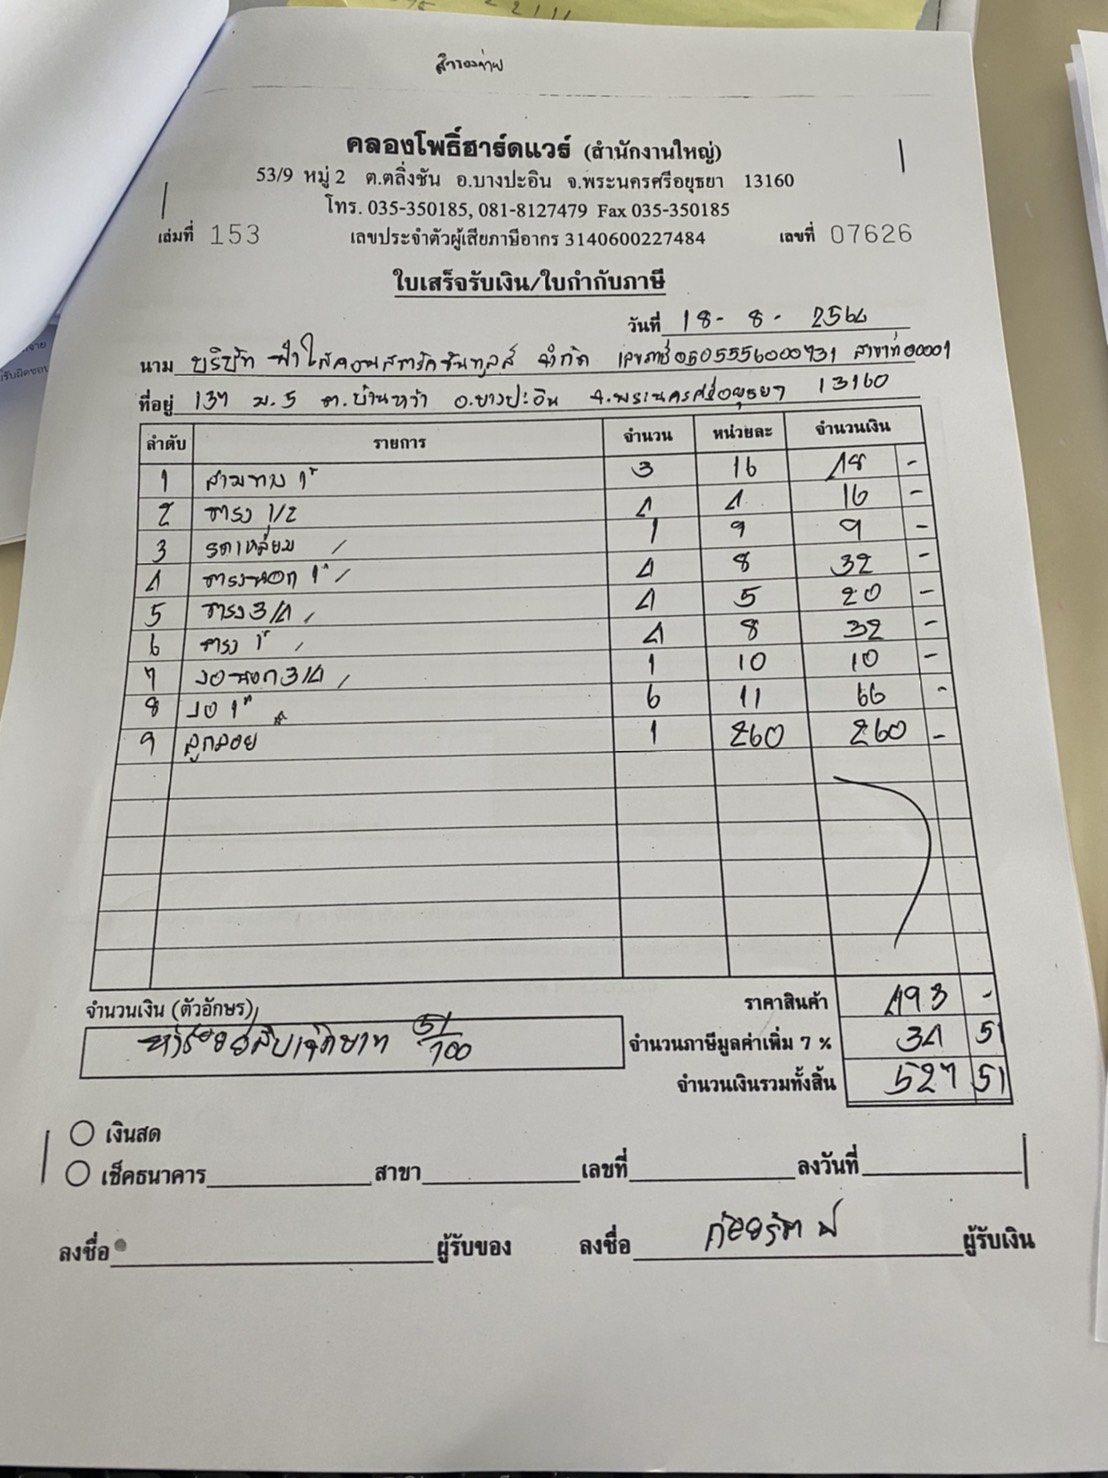 สำรองจ่าย
คลองโพธิ์ฮาร์ดแวร์ (สำนักงานใหญ่)
53/9 หมู่ 2 ต.ตลิ่งชัน อ.บางปะอิน จ.พระนครศรีอยุธยา 13160
โทร. 035-350185, 081-8127479 Fax 035-350185
เล่มที่ 153 เลขประจำตัวผู้เสียภาษีอากร 3140600227484 เลขที่ 07626
ใบเสร็จรับเงิน/ใบกำกับภาษี
วันที่ 18-8-2566
นาม บริษัท ฟ้าใสคอนสตรัคชั่นทูลส์ จำกัด สาขาที่ 00001
ที่อยู่ 137 ม.5 ต.บ้านหว้า อ.บางปะอิน จ.พระนครศรีอยุธยา 13160
ลำดับ รายการ จำนวน หน่วยละ จำนวนเงิน
1 สามทาง 1" 3 16 48 -
2 ตรง 1/2 4 4 16 -
3 ลดเหลี่ยม 1 9 9 -
4 ตรงนอก 1" 4 8 32 -
5 ตรง 3/4 4 5 20 -
6 ตรง 1" 4 8 32 -
7 งอนอก 3/4 1 10 10 -
8 งอ 1" 6 11 66 -
9 ลูกลอย 1 260 260 -
ราคาสินค้า 493 -
จำนวนเงิน (ตัวอักษร)
ห้าร้อยยี่สิบเจ็ดบาท 51/100
จำนวนภาษีมูลค่าเพิ่ม 7 % 34 51
จำนวนเงินรวมทั้งสิ้น 527 51
เงินสด
เช็คธนาคาร สาขา เลขที่ ลงวันที่
ลงชื่อ ผู้รับของ ลงชื่อ ผู้รับเงิน